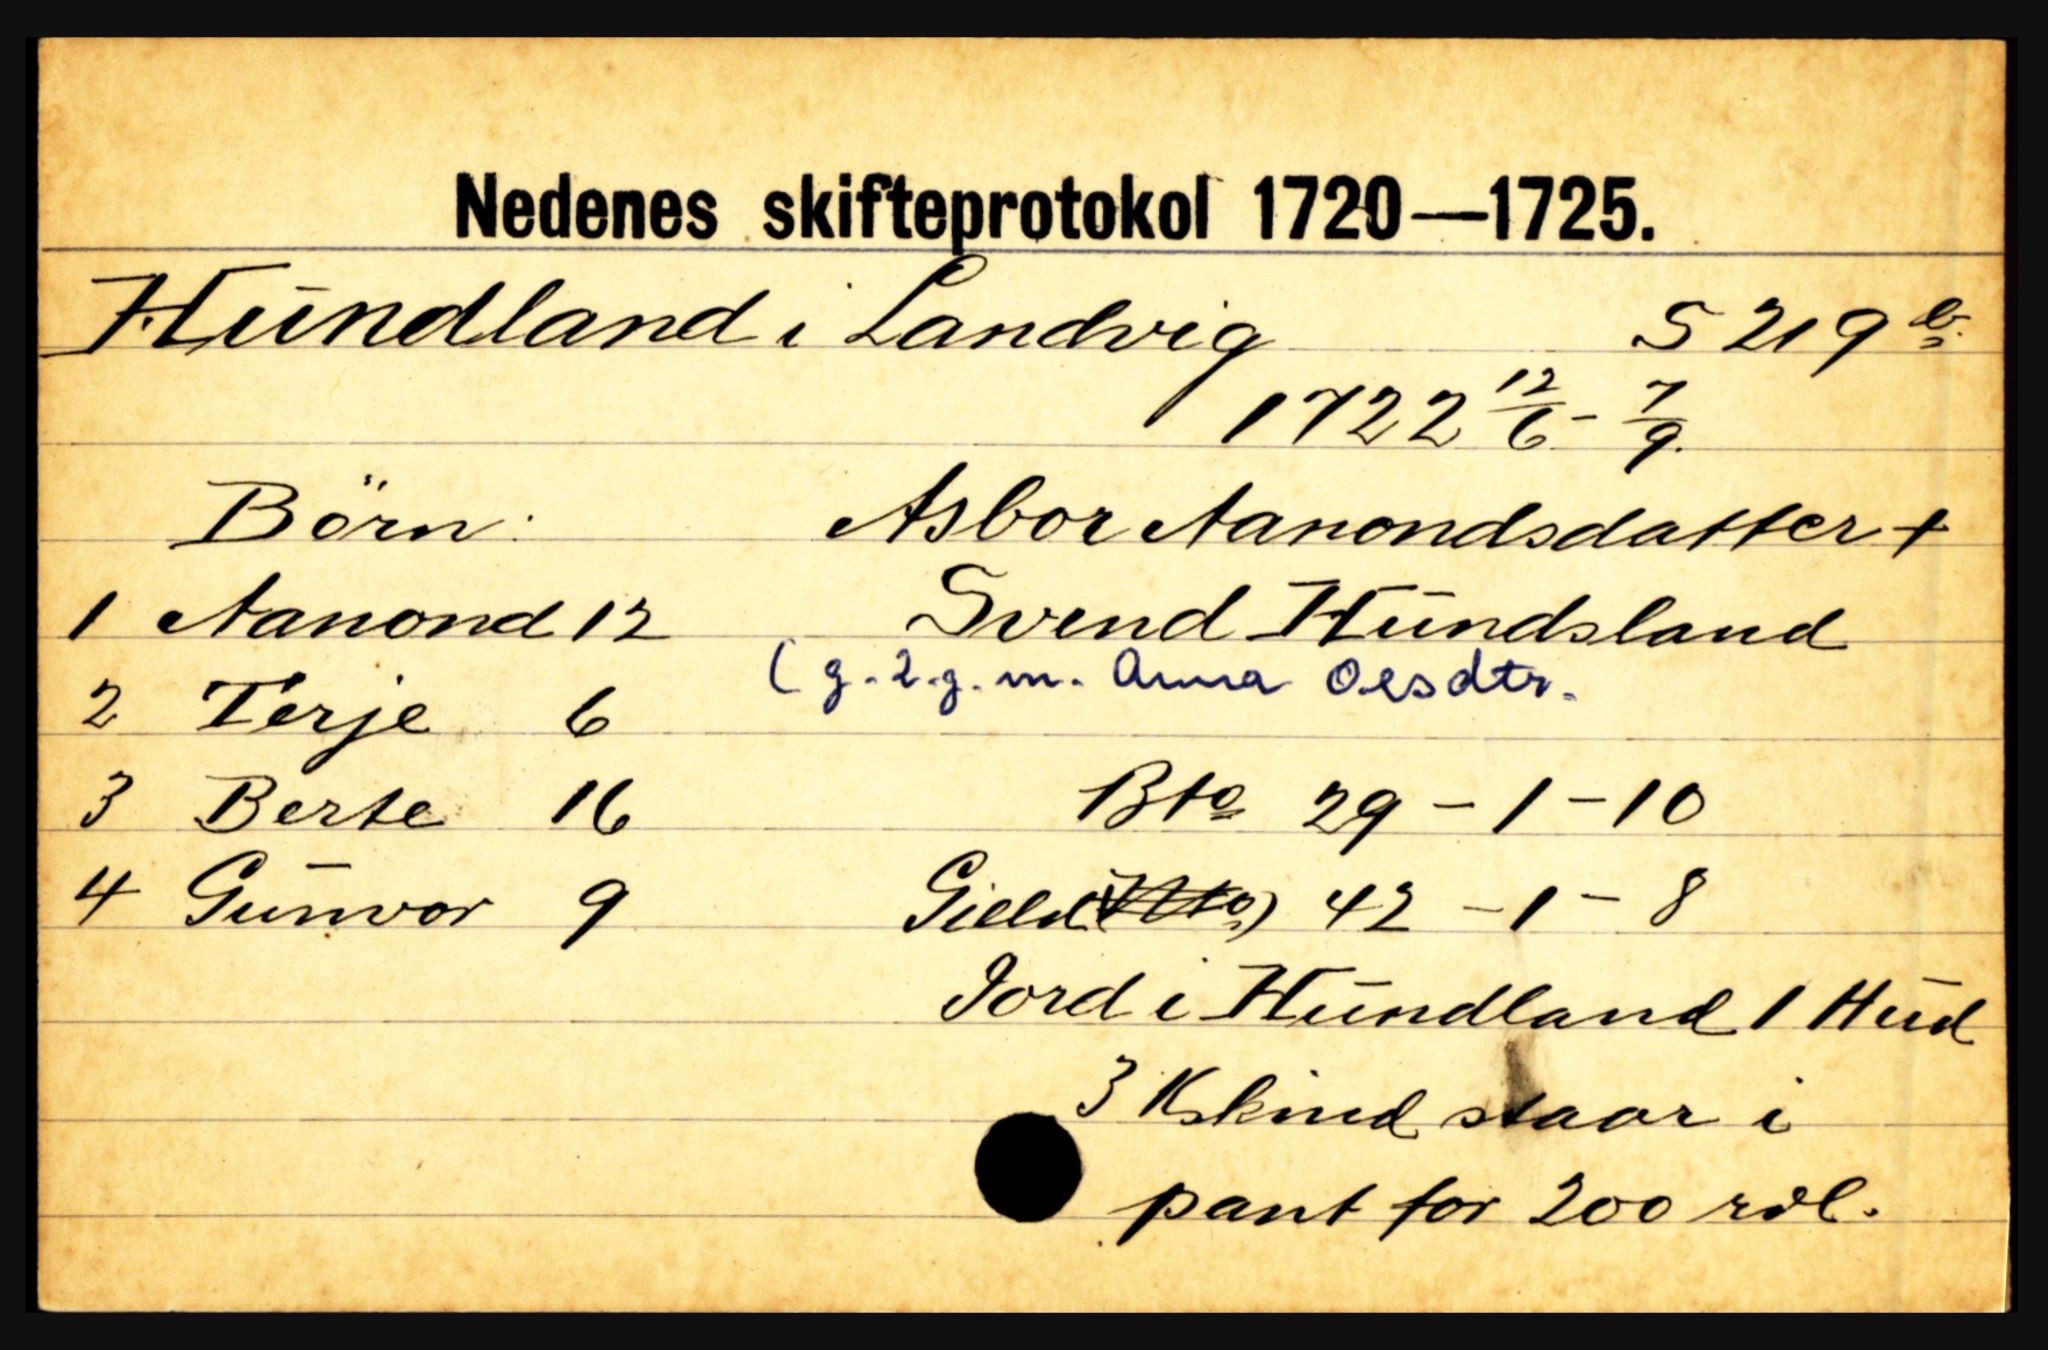 Nedenes skifteprotokol 1720—1725.
Hundland i Landvig S 219 b.
1722 12/6 - 7/9.
Börn: Asbor Aanondsdatter +
1 Aanond 12 Svend Hundsland
(g. 2. g. m. Anna Olsdtr.
2 Terje 6
3 Berte 16 Bto 29 - 1 - 10
4 Gunvor 9 Gield (Nto) 42 - 1 - 8
Jord i Hundland 1 Hud
3 Kskind staar i
pant for 200 rdl.